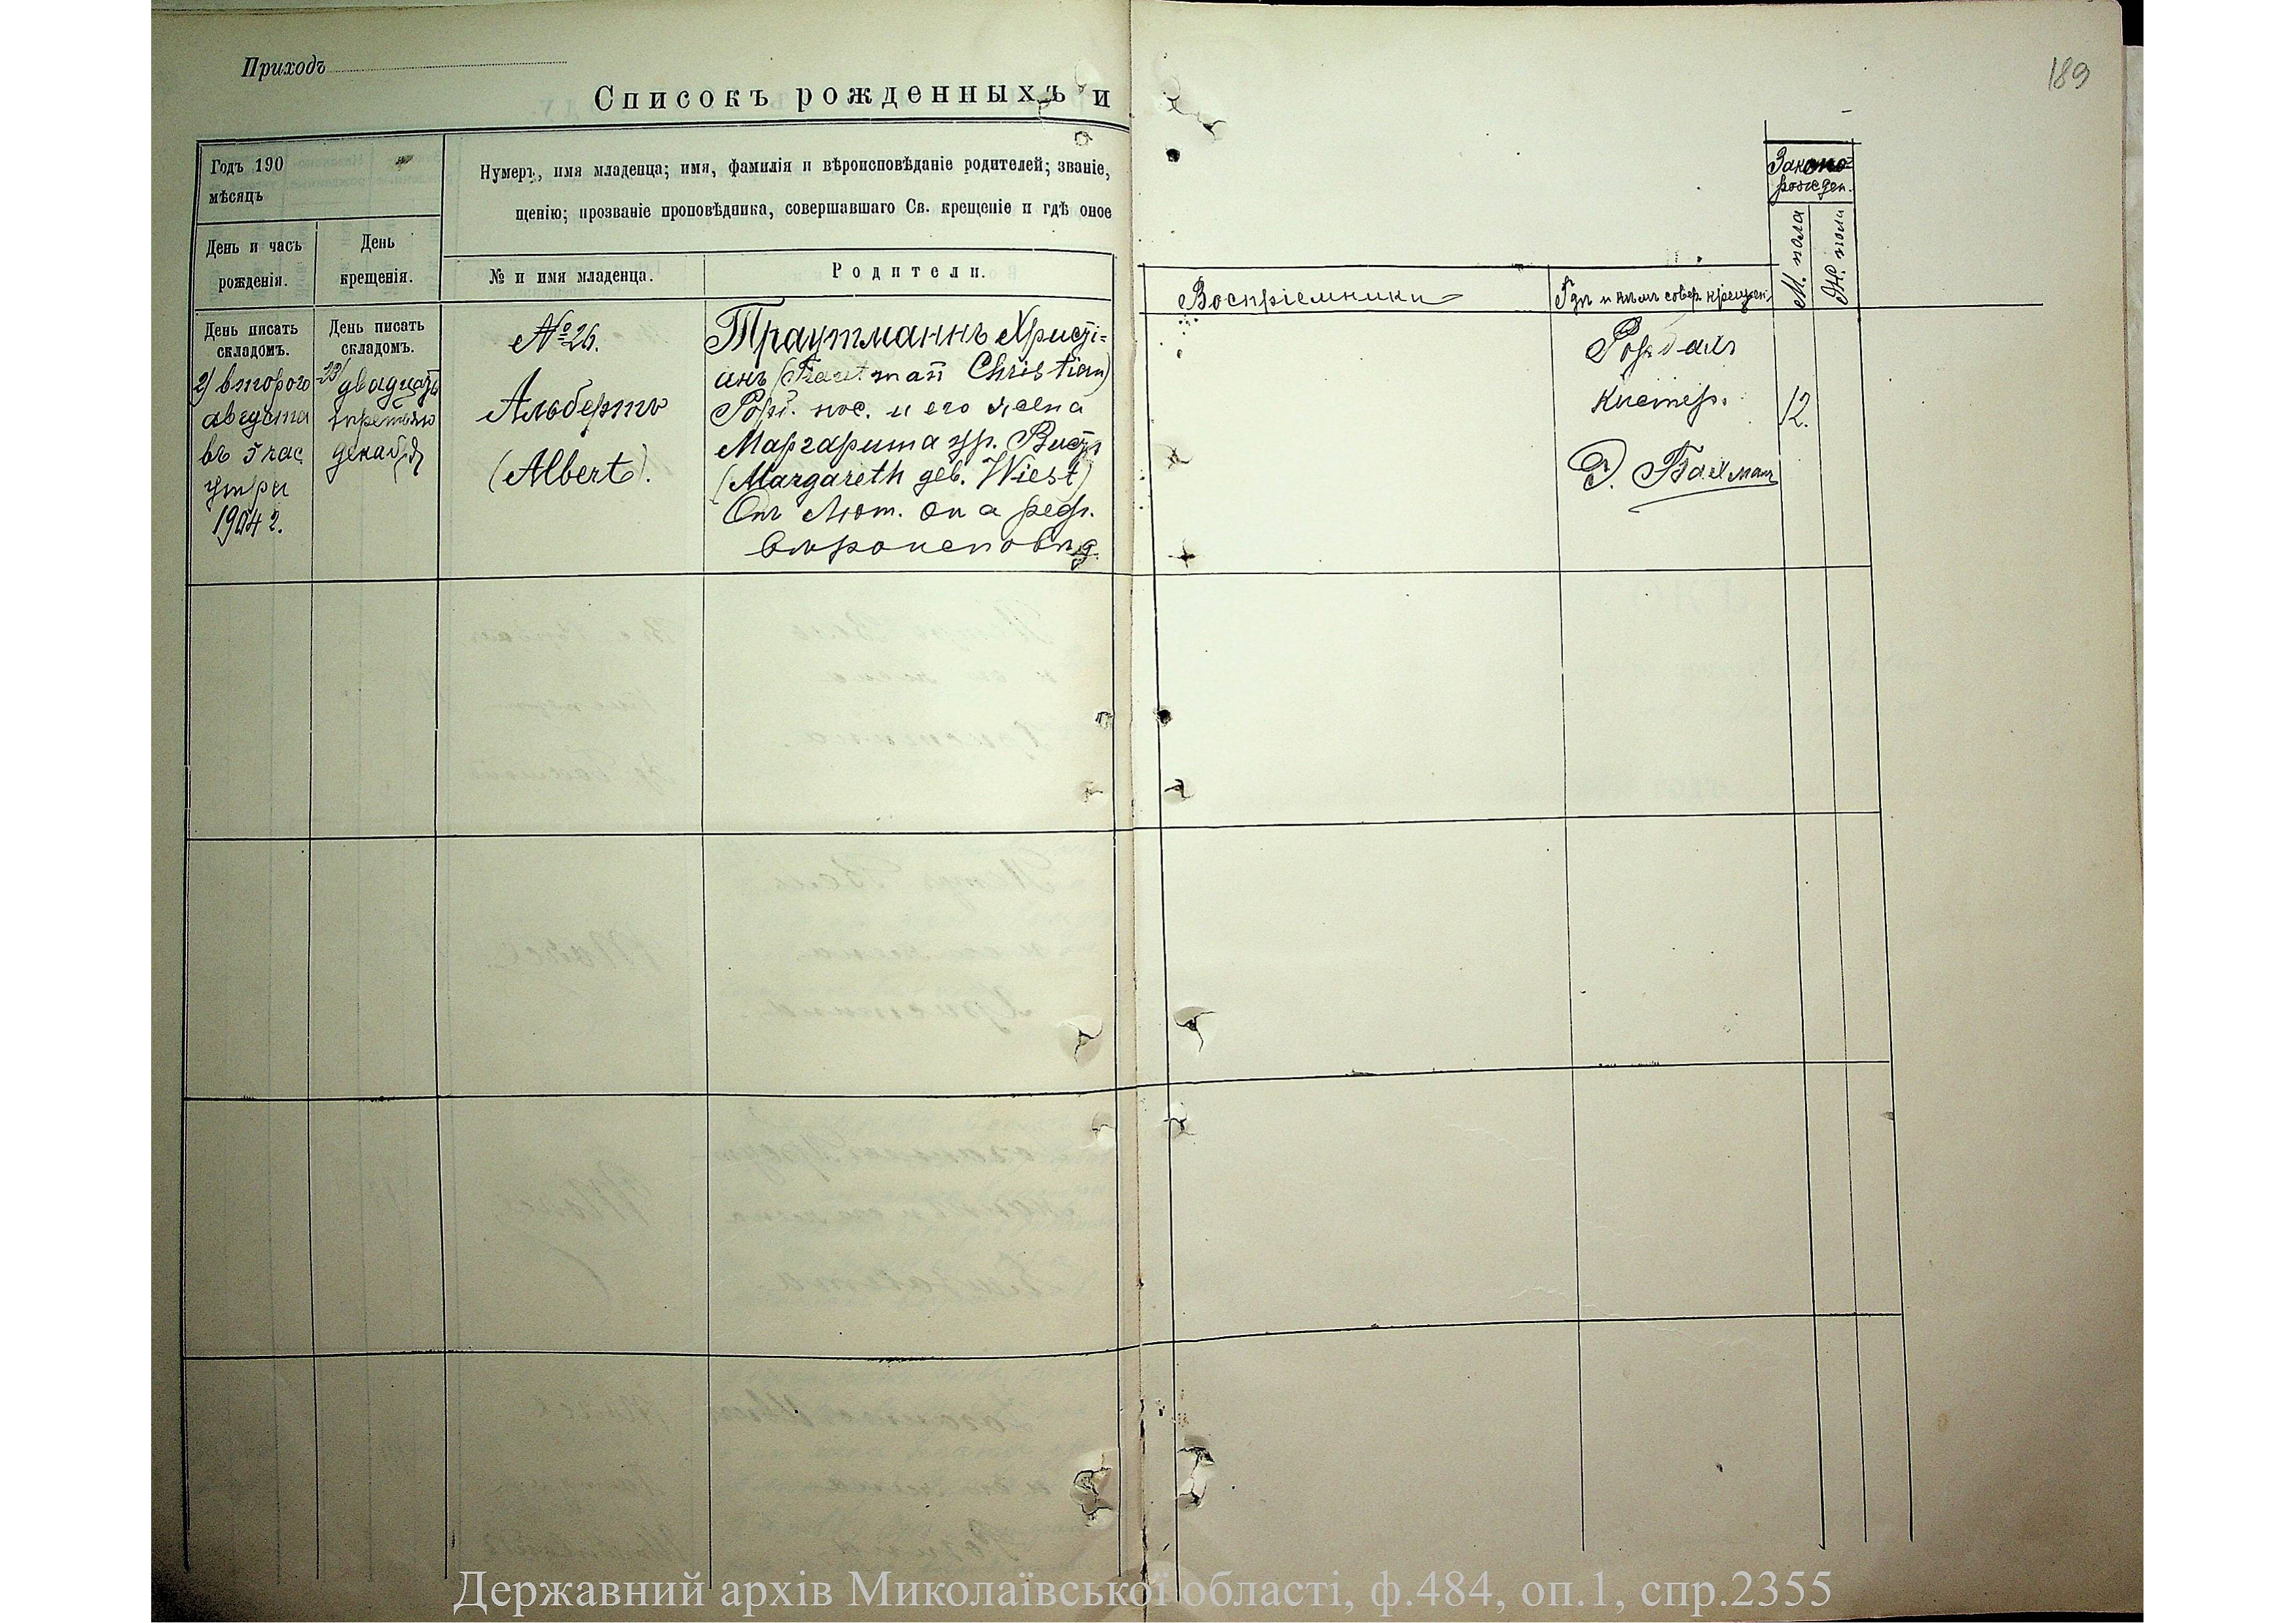 Приходъ
189
Списокъ рожденныхъ и
Годъ 190
мѣсяцъ
Нумеръ, имя младенца; имя, фамилія и вѣроисповѣданіе родителей; званіе,
щенію; прозваніе проповѣдника, совершавшаго Св. крещеніе и гдѣ оное
День и часъ
рожденія.
День
крещенія.
№ и имя младенца.
Родители.
Воспріемники
Гдѣ и кѣмъ совер. крещен.
Законо-
рожден.
М. пола
Ж. пола
День писать
складомъ.
2) второго
августа
въ 5 час.
утра
1904 г.
День писать
складомъ.
23) двадцать
третьяго
декабря
№ 26.
Альбертъ
(Albert).
Траутманнъ Христі-
анъ (Trautmañ Christian)
пос. и его жена
Маргарита ур. Вистъ
(Margareth geb. Wiest)
Онъ Лют. она реф.
вѣроисповѣд.
Рорбахъ
Кистеръ.
12.
Державний архів Миколаївської області, ф.484, оп.1, спр.2355